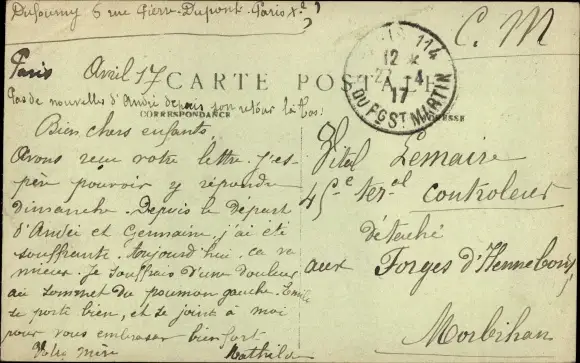 Dufourny 6 rue Pierre-Dupont. Paris Xe
C. M
Paris Avril 17
CARTE POSTALE
Pas de nouvelles d'André depuis son retour
CORRESPONDANCE
ADRESSE
114
12
22 - 4
17
DU FG ST MARTIN
Bien chers enfants
Avons reçu votre lettre. J'es-
père pouvoir y répondre
dimanche. Depuis le départ
d'André et Germaine, j'ai été
souffrante. aujourd'hui, ca va
mieux. Je souffrais d'une douleur
au sommet du poumon gauche. Emile
se porte bien, et se joint à moi
pour vous embrasser bien fort
Votre mère Mathilde
Vital Lemaire
45e terel
Controleur
détaché
aux Forges d'Hennebont
Morbihan